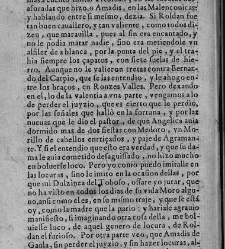 aforadas que hizo, o Amadis, en las Malenconicas:
y hablando entre si mesmo, dezia. Si Roldan fue
tan buen cauallero, y tan valiente, como todos di-
zen, que marauilla, pues al fin era encantado, y
no le podia matar nadie, sino era metiendole vn
alfiler de a blanca, por la punta del pie, y el tra-
hia siempre los çapatos, con siete suelas de hie-
rro. Aunque no le valieron tretas contra Bernar-
do del Carpio, que se las entendio, y le ahogo en-
tre los braços, en Ronzes Valles. Pero dexando
en el, lo de la valentia a vna parte, vengamos a lo
de perder el juyzio, que es cierto que le perdio,
por las señales que hallò en la fortana, y por las
nueuas que le dio el pastor, de que Angelica auia
dormido mas de dos siestas con Medoro, vn Mo-
rillo de cabellos enrizados, y paje de Agraman-
te. Y si el entendio que esto era verdad, y que su da-
ma le auia cometido desaguisado, no hizo mucho
en boluerse loco. Pero yo como puedo imitalle en
las locuras, sino le imito en la ocasion dellas, por
que mi Dulzinea del Toboso, osare yo jurar, que
no ha visto en todos los dias de su vida Moro algu-
no, ansi como el es, en su mismo traje, y que se està
oy, como la madre que la pario: y hariale agrauio
manifiesto, si imaginando otra cosa della, me bol-
uiesse loco, de aquel genero de locura, de Rol-
dan el furioso. Por otra parte veo, que Amadis de
Gaula, sin perder el juyzio, y sin hazer locuras, al-